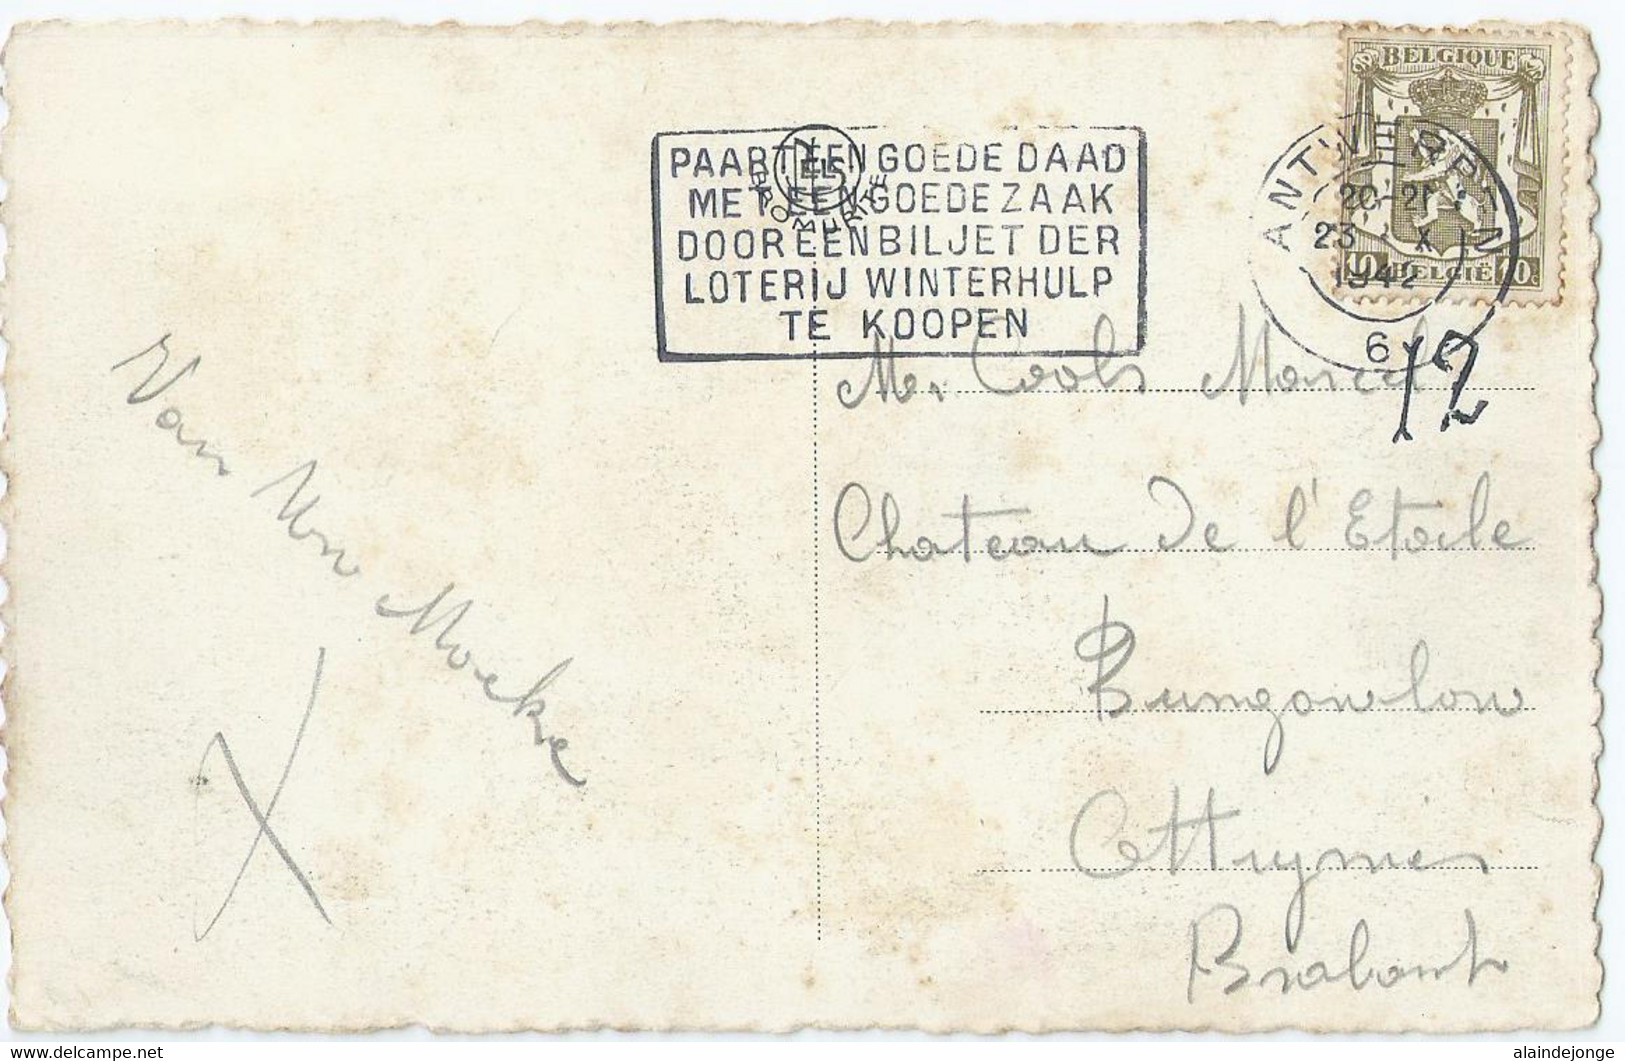 BELGIQUE
PAART EEN GOEDE DAAD
MET EEN GOEDE ZAAK
DOOR EEN BILJET DER
LOTERIJ WINTERHULP
TE KOOPEN
ANTWERPEN
20-21
23 X
1942
6
10c BELGIË 10c
12
M. Cools Marcel
Chateau de l'Etoile
Bungowlow
Ottignies
Brabant
Van Mon Moeke
X
www.delcampe.net
alaindejonge